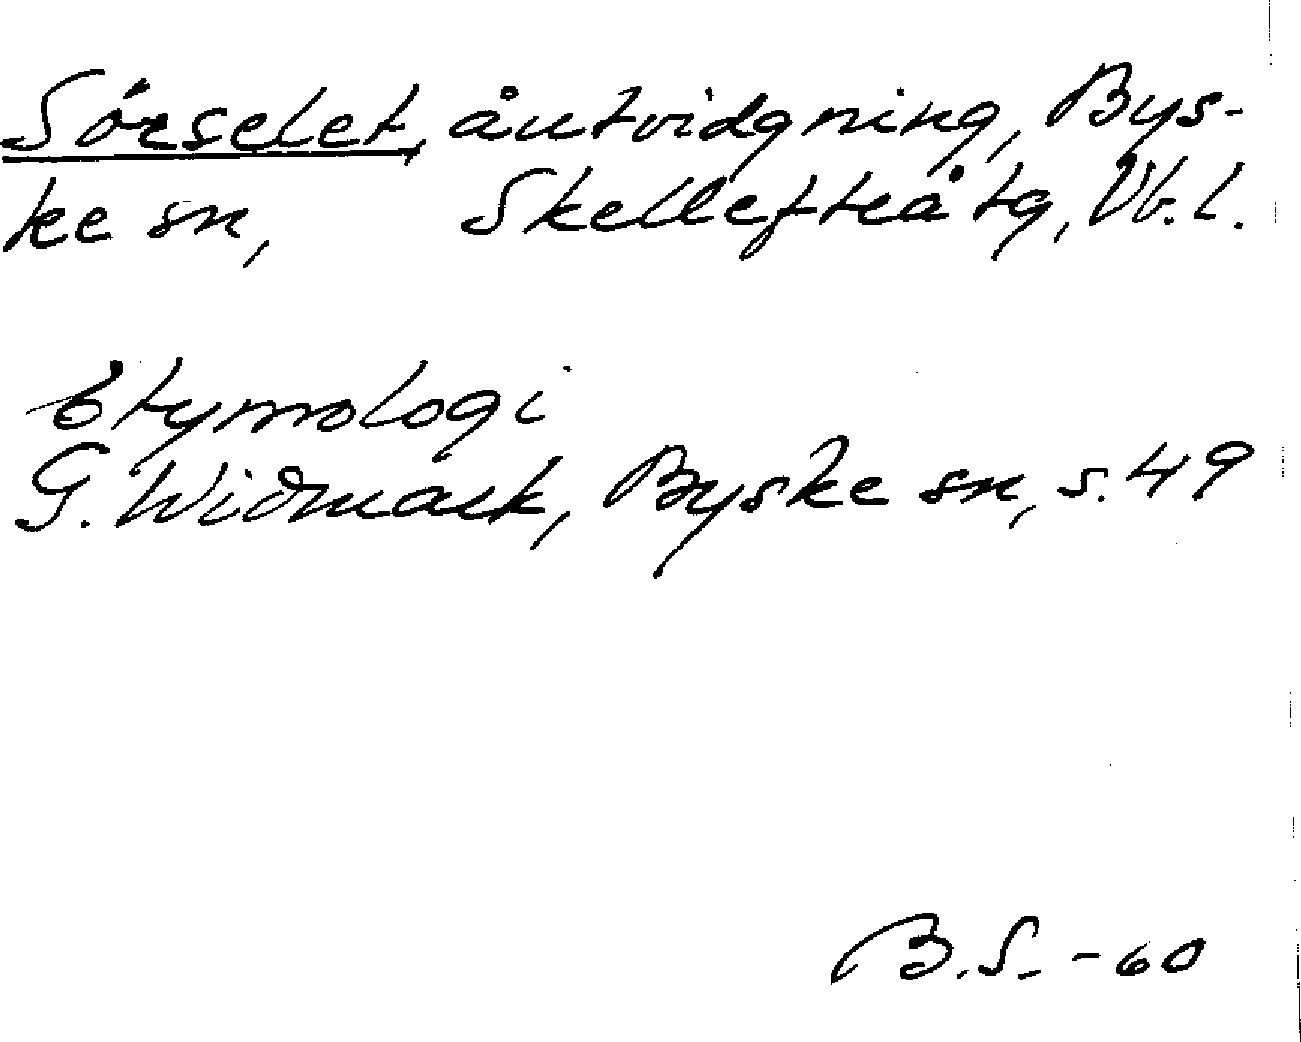 Sörselet, åutvidgning, Bys-
ke sn, Skellefteå tg, Vb.l.
Etymologi
G. Widmark, Byske sn, s. 49
B.S. -60